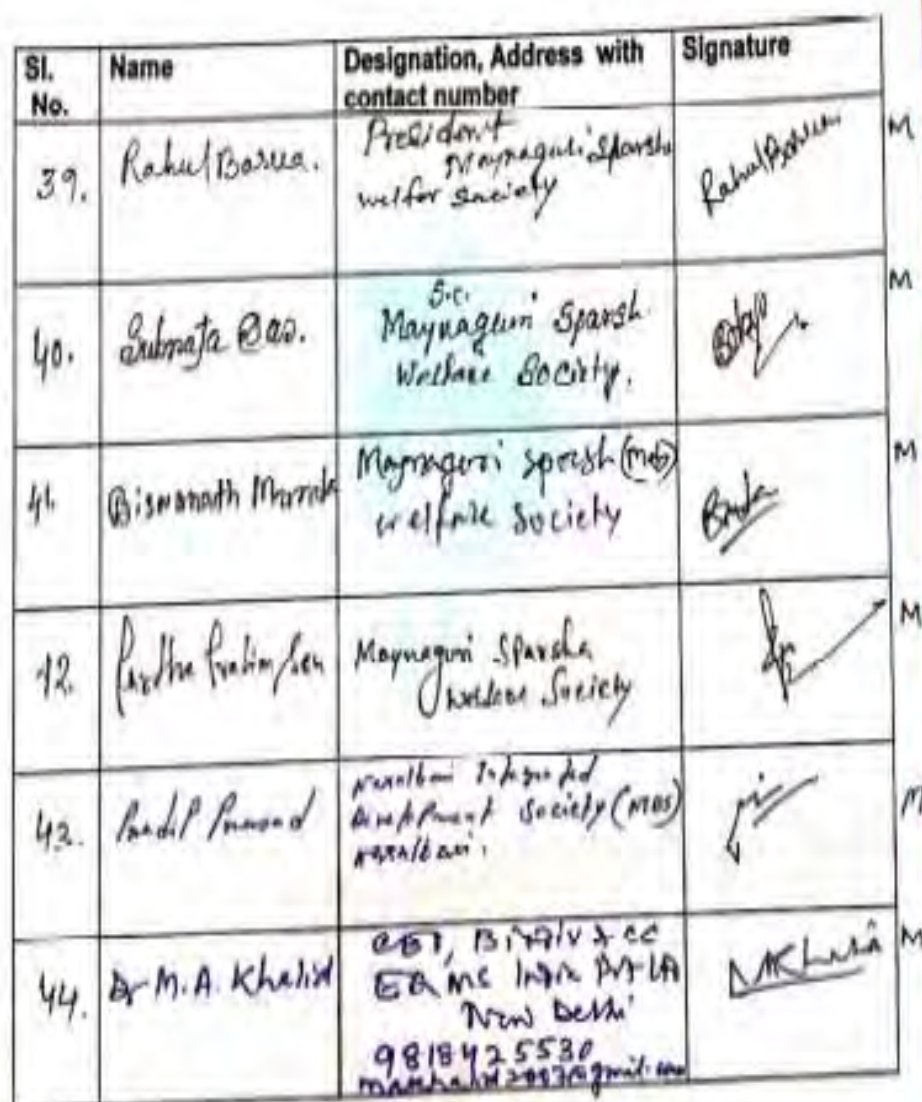 Sl. No.
Name
Designation, Address with contact number
Signature
39.
Rahul Barua.
President
Maynaguri Sparsh
welfor Society
Rahul Barua
M
40.
Das.
S.C.
Maynaguri Sparsh
Welfare Society.
M
41.
Biswanath
Maynaguri Sparsh
welfare Society
M
42.
Partha Pratim Sen
Maynaguri Sparsha
Welfare Society
M
43.
Pradip Prasad
Naxalbari Integrated
Development Society
Naxalbari.
M
44.
Dr M.A. Khalid
EQMS India Pvt Ltd
New Delhi
9818425530
M